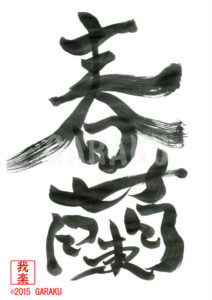 春
蘭
GARAKU
我楽
©2015 GARAKU